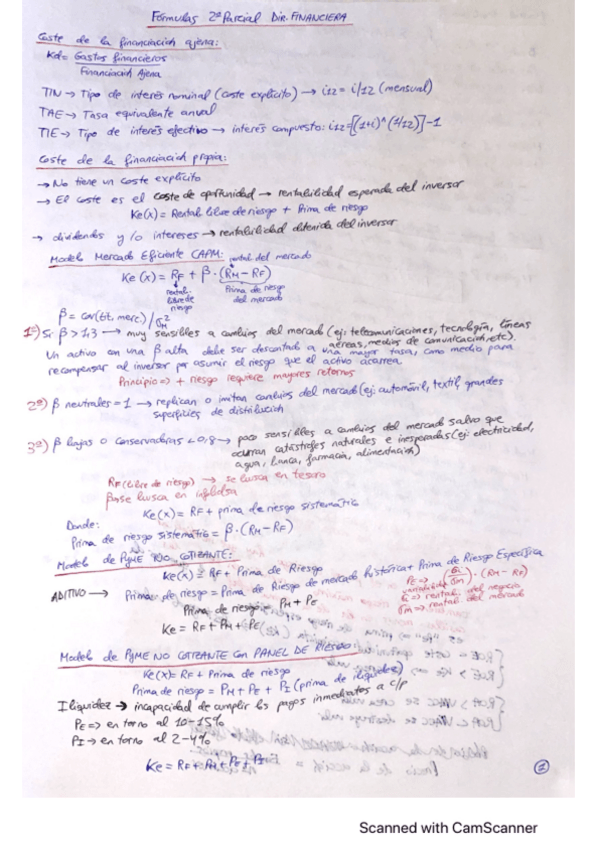 Fórmulas 2º Parcial Dir. FINANCIERA
Coste de la financiación ajena:
Kd = Gastos financieros
Financiación Ajena
TIN → Tipo de interés nominal (coste explícito) → i12 = i/12 (mensual)
TAE → Tasa equivalente anual
TIE → Tipo de interés efectivo → interés compuesto: i12=[(1+i)^(1/12)]-1
Coste de la financiación propia:
→ No tiene un coste explícito
→ El coste es el coste de oportunidad → rentabilidad esperada del inversor
Ke(x) = Rentab libre de riesgo + Prima de riesgo
→ dividendos y/o intereses → rentabilidad obtenida del inversor
Modelo Mercado Eficiente CAPM: rental del mercado
Ke(x) = RF + β · (RM - RF)
rental. libre de riesgo
Prima de riesgo del mercado
β = cov(tit, merc.)/σ²M
1º) Si β > 1,3 → muy sensibles a cambios del mercado (ej: telecomunicaciones, tecnología, líneas
aéreas, medios de comunicación, etc).
Un activo con una β alta debe ser descontado a una mayor tasa, como medio para
recompensar al inversor por asumir el riesgo que el activo acarrea.
Principio => + riesgo requiere mayores retornos
2º) β neutrales = 1 → replican o imitan cambios del mercado (ej: automóvil, textil, grandes
superficies de distribución
3º) β bajas o conservadoras < 0,8 → poco sensibles a cambios del mercado salvo que
ocurran catástrofes naturales e inesperadas (ej: electricidad,
agua, banca, farmacia, alimentación)
RF (libre de riesgo) → se busca en tesoro
β se busca en infobolsa
Ke(x) = RF + prima de riesgo sistemático
Donde:
Prima de riesgo sistemático = β · (RM - RF)
Modelo de PYME NO COTIZANTE:
Ke(x) = RF + Prima de Riesgo
ADITIVO → Prima de riesgo = Prima de Riesgo de mercado histórica + Prima de Riesgo Específica
Prima de riesgo = PM + PE
Ke = RF + PM + PE
PE => (σi/σm) · (RM - RF)
σi => rental. del negocio
σm => rental. del mercado
Modelo de PYME NO COTIZANTE con PANEL DE RIESGO:
Ke(x) = RF + Prima de riesgo
Prima de riesgo = PM + PE + PI (prima de iliquidez)
Iliquidez → incapacidad de cumplir los pagos inmediatos a c/p
PE => en torno al 10-15%
PI → en torno al 2-4%
Ke = RF + PM + PE + PI
1
Scanned with CamScanner